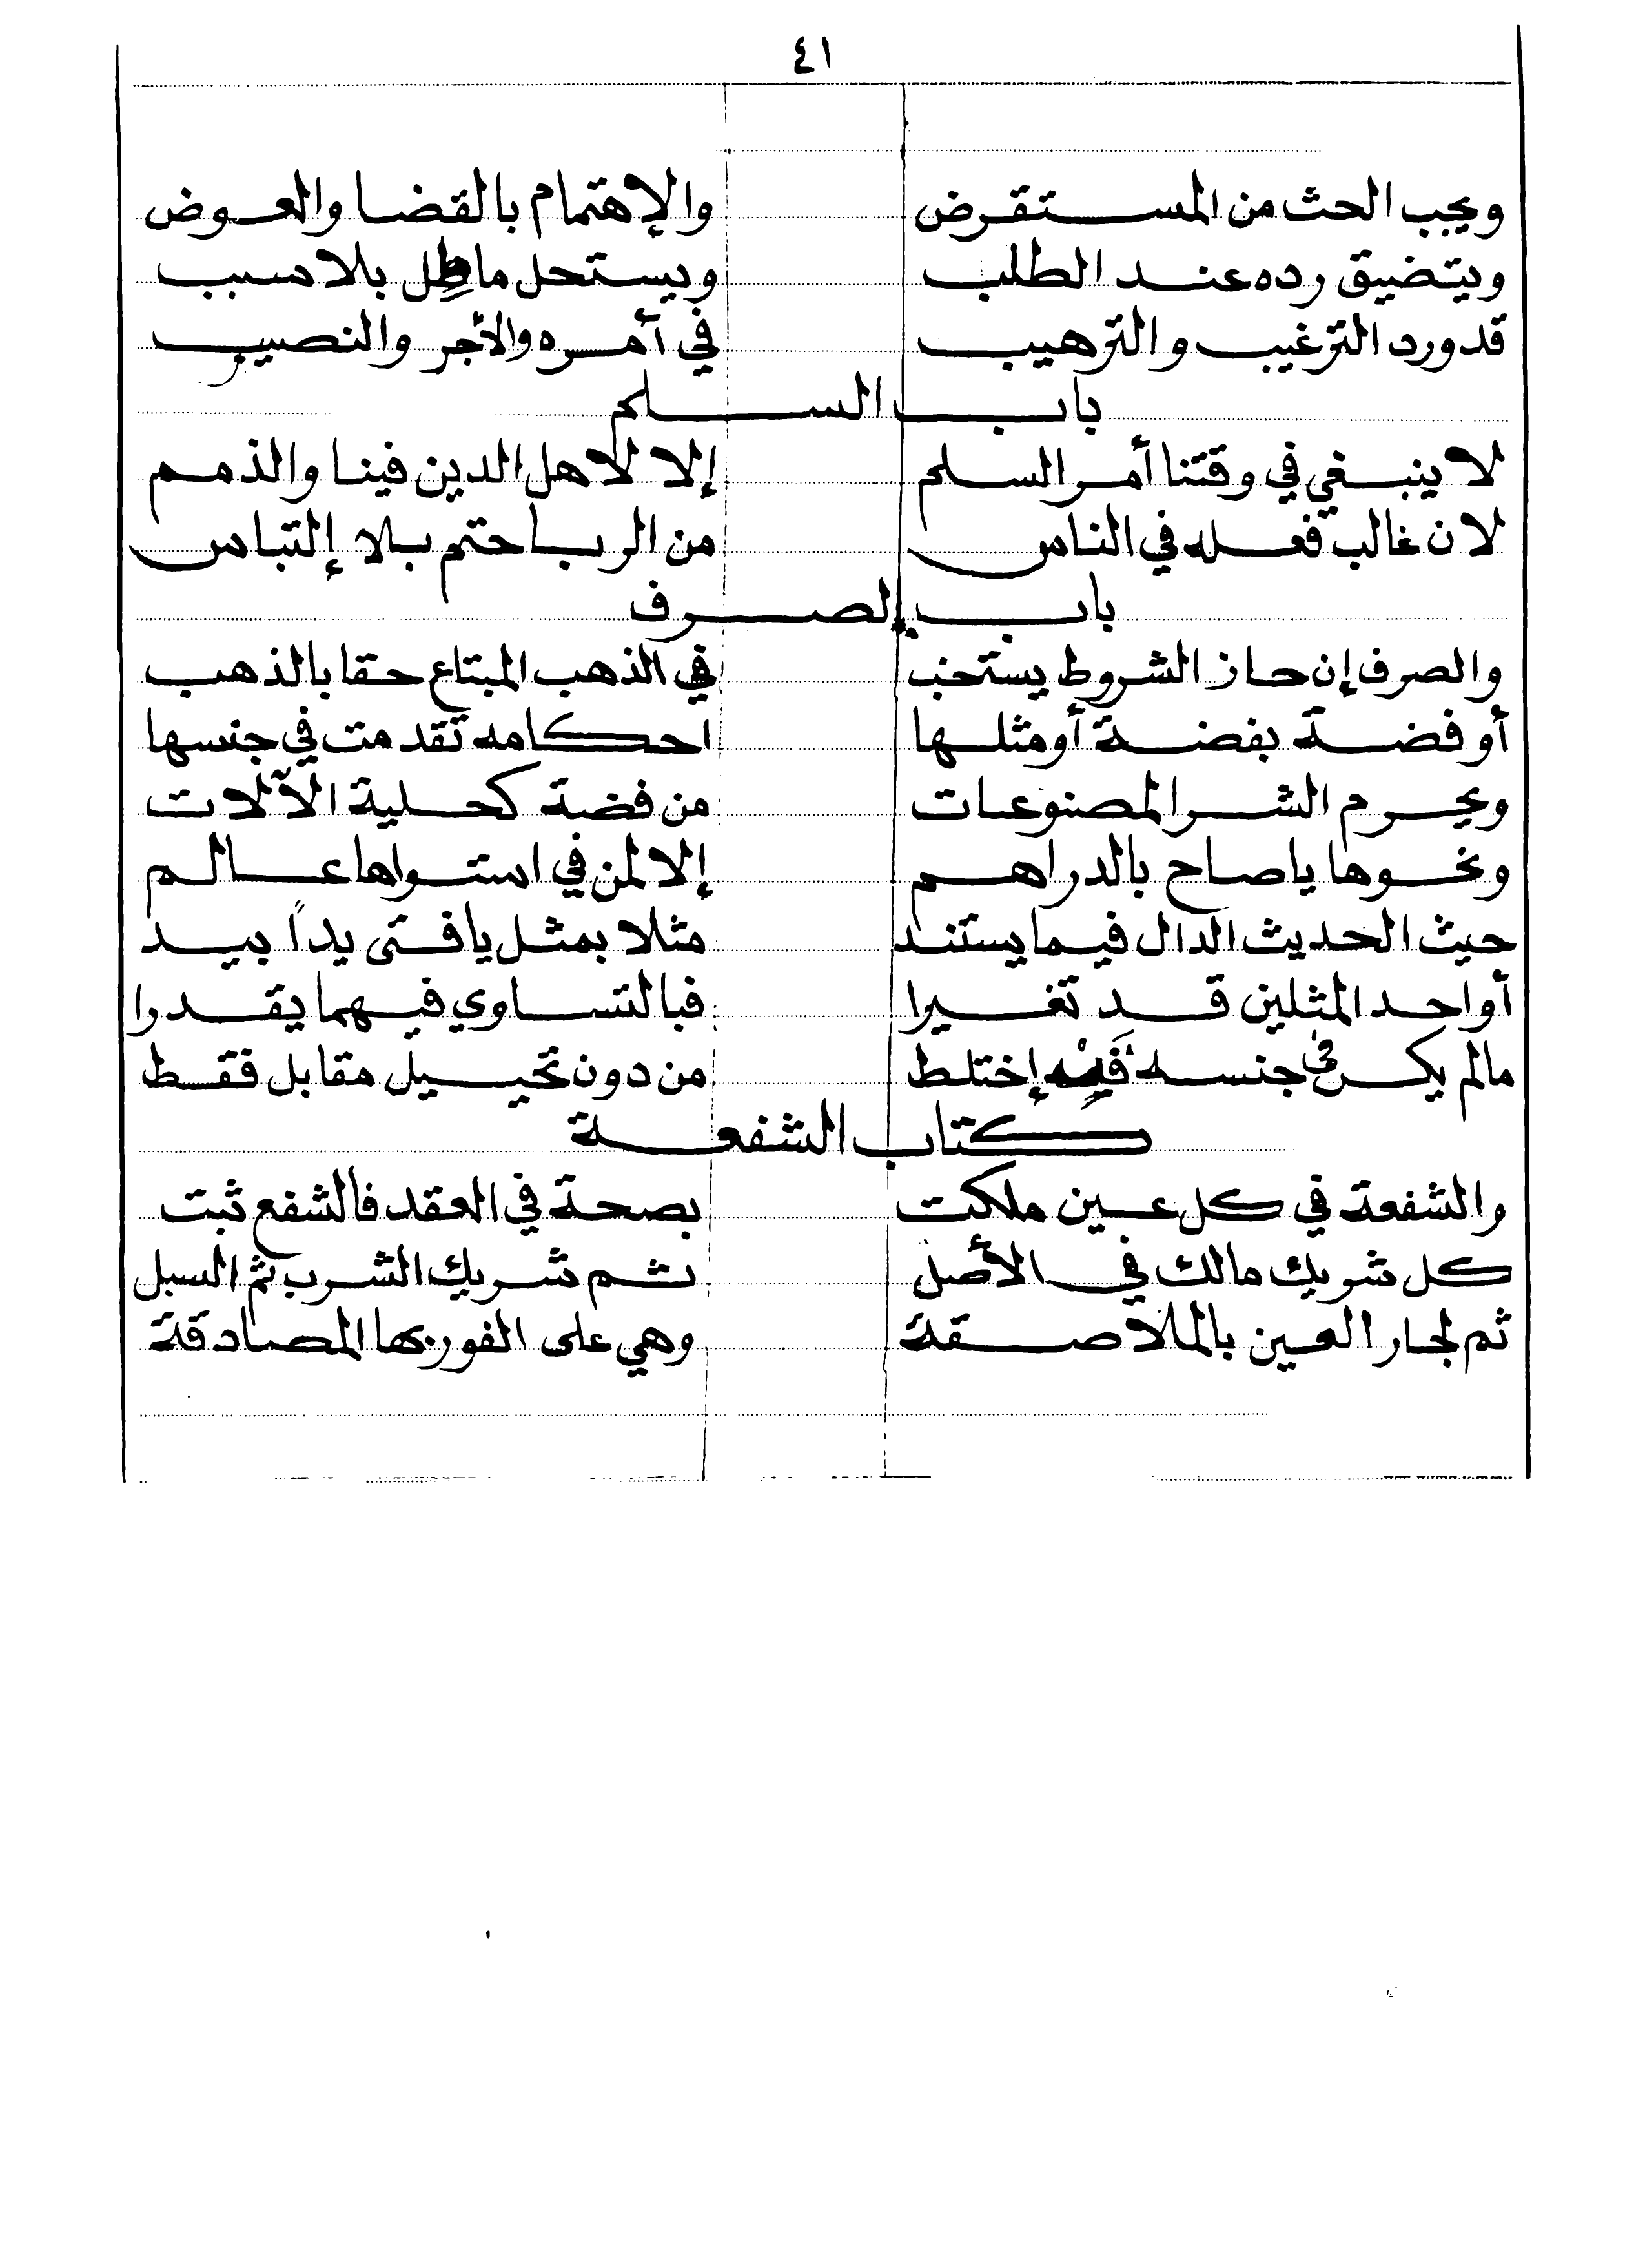 ٤١
ويجب الحث من المستقرض والإهتمام بالقضا والعوض
ويتضيق رده عند الطلب ويستحل ماطل بلا سبب
قد ورد الترغيب والترهيب في أمره والأجر والنصيب
باب السلم
لا ينبغي في وقتنا أمر السلم إلا لاهل الدين فينا والذمم
لان غالب فعله في الناس من الربا حتم بلا إلتباس
باب الصرف
والصرف إن حاز الشروط يستحب في الذهب المبتاع حقا بالذهب
أو فضة بفضة أو مثلها احكامه تقدمت في جنسها
ويحرم الشرا لمصنوعات من فضة كحلية الآلات
ونحوها ياصاح بالدراهم إلا لمن في استواها عالم
حيث الحديث الدال فيما يستند مثلا بمثل يا فتى يداً بيد
أو احد المثلين قد تغيرا فبالتساوي فيهما يقدرا
مالم يكن في جنسه فيه إختلط من دون تحييل مقابل فقط
كتاب الشفعة
والشفعة في كل عين ملكت بصحة في العقد فالشفع ثبت
كل شريك مالك في الأصل ثم شريك الشرب ثم السبل
ثم لجار العين بالملاصقة وهي على الفور بها المصادقة